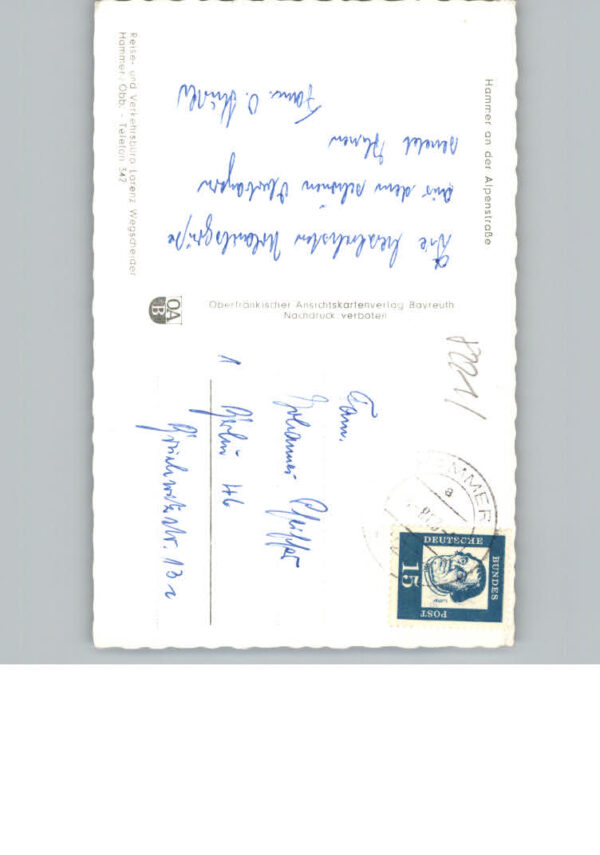 Hammer an der Alpenstraße
Die herzlichsten Urlaubsgrüße
aus dem schönen Oberbayern
sendet Ihnen
Fam. O.
Reise- und Verkehrsbüro Lorenz Wegscheider
Hammer/Obb. - Telefon 342
Oberfränkischer Ansichtskartenverlag Bayreuth
Nachdruck verboten
OA
B
8221/
HAMMER
a
DEUTSCHE
BUNDES
POST
15
Luther
Fam.
Johannes Pfeiffer
1 Berlin 46
13